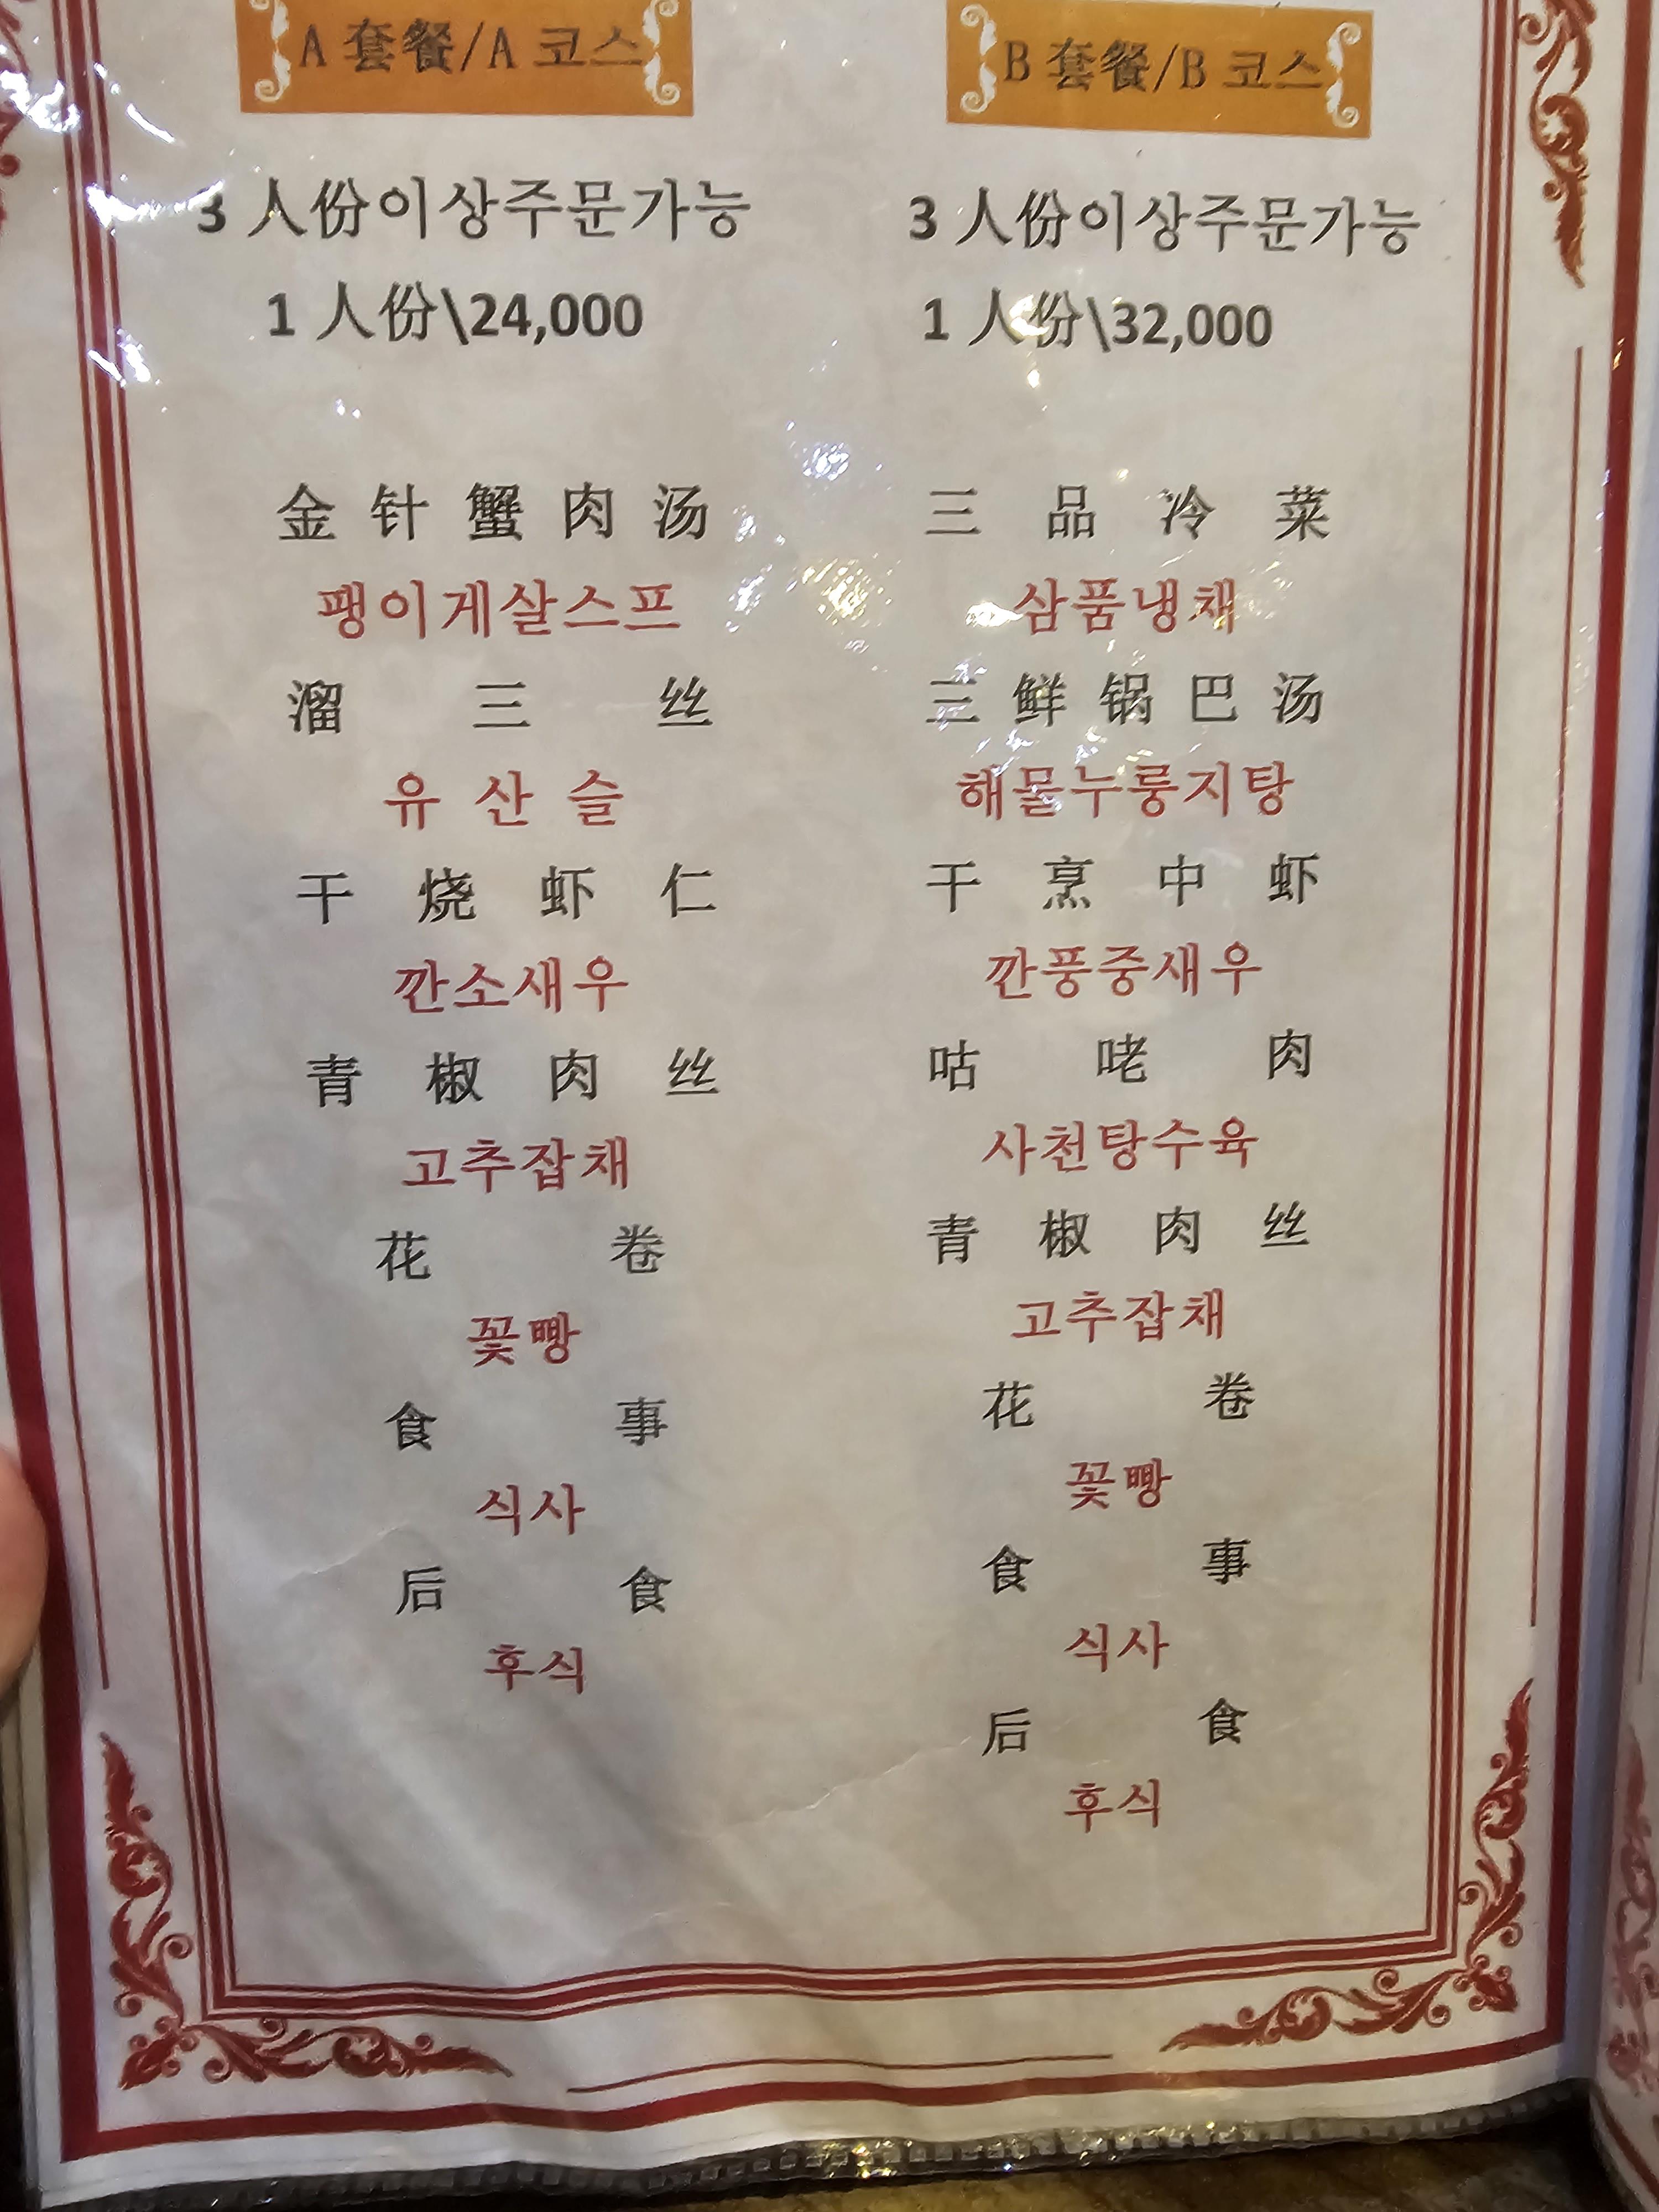 A 套餐/A 코스
3 人份이상주문가능
1 人份\24,000
金针蟹肉汤
팽이게살스프
溜三丝
유산슬
干烧虾仁
깐소새우
青椒肉丝
고추잡채
花卷
꽃빵
食事
식사
后食
후식
B 套餐/B 코스
3 人份이상주문가능
1 人份\32,000
三品冷菜
삼품냉채
三鲜锅巴汤
해물누룽지탕
干烹中虾
깐풍중새우
咕咾肉
사천탕수육
青椒肉丝
고추잡채
花卷
꽃빵
食事
식사
后食
후식